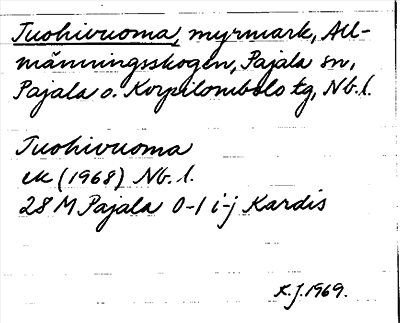 Tuohivuoma, myrmark, All-
männingsskogen, Pajala sn,
Pajala o. Korpilombolo tg, Nb. l.
Tuohivuoma
ek (1968) Nb. l.
28 M Pajala 0-1 i-j Kardis
K.J. 1969.